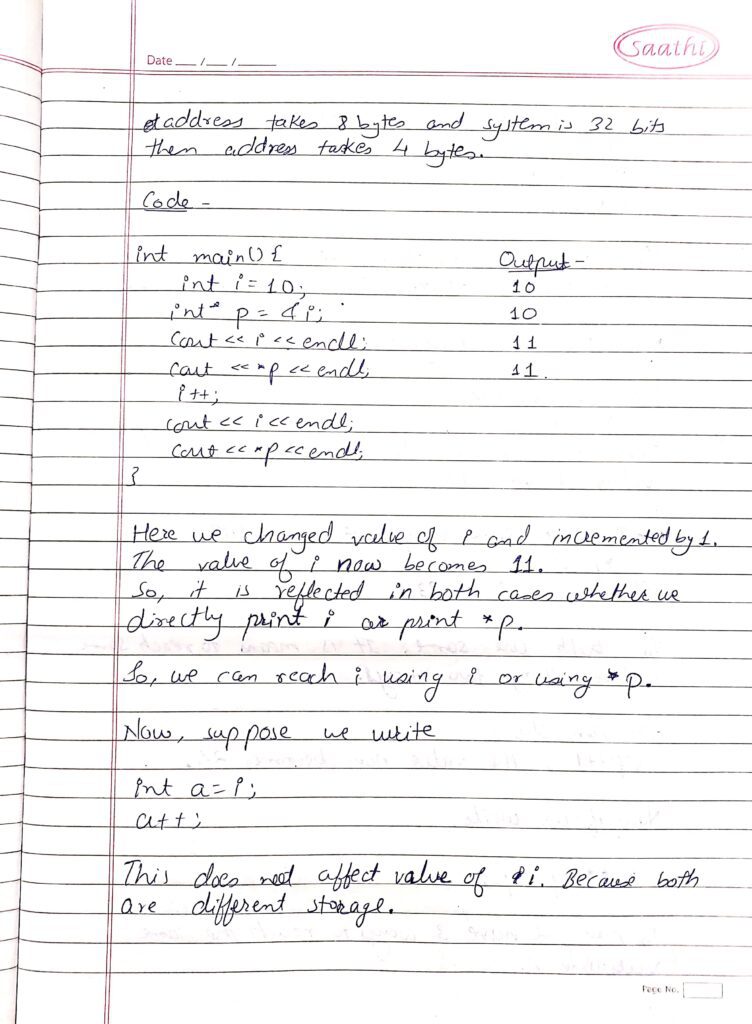 Saathi
Date __/__/____
address takes 8 bytes and system is 32 bits
then address takes 4 bytes.
Code -
int main() {
Output -
int i = 10;
10
int* p = &i;
10
cout << i << endl;
11
cout << *p << endl;
11.
i++;
cout << i << endl;
cout << *p << endl;
}
Here we changed value of i and incremented by 1.
The value of i now becomes 11.
So, it is reflected in both cases whether we
directly print i or print *p.
So, we can reach i using i or using *p.
Now, suppose we write
int a = i;
a++;
This does not affect value of i. Because both
are different storage.
Page No.